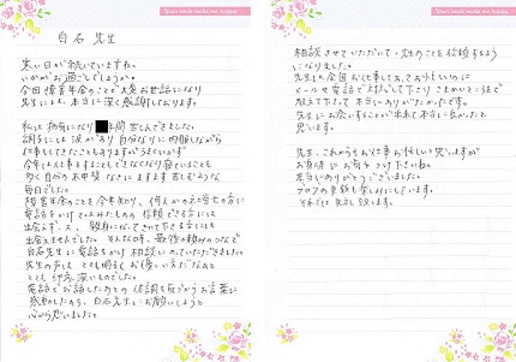 Your smile makes me happy.
白石 先生
寒い日が続いていますね。
いかがお過ごしでしょうか。
今回 障害年金のことで大変お世話になり
先生には、本当に深く感謝しております。
私は 病気になり 年間 苦しんできました。
調子には波があり 自分なりに内服しながら
仕事をしてきたこともありますがうまくいかず
今年は仕事をすることもできなくなり寝ていることも
多く自分の不甲斐なさにますます苦しむような
毎日でした。
障害年金のことを本を知り、何人かの社労士の方に
電話をかけてみたものの 信頼できる方にも
出会えず、親身になってきいて下さる方にも
出会えませんでした。そんな時、最後の頼みのつなで
白石先生に電話をかけ 相談にのっていただきました。
先生の声は、とても明るく お優しい方だなあと
とても印象深いものでした。
電話でお話ししたあとの 体調を気づかうお言葉に
感動したのち、白石先生にお願いしようと
心から思いました。
Your smile makes me happy.
相談させていただいて、先生のことを信頼するよう
になりました。
先生は全国お仕事しておられお忙しいのに
メールや電話で対応して下さり こまかいところまで
教えて下さって 本当にありがたかったです。
先生にお会いすることが出来て本当に良かったと
思います。
先生、これからもお仕事お忙しいと思いますが
お身体に お気をつけ下さいね。
本当にありがとうございました。
ブログの更新も楽しみにしています。
それでは 失礼致します。